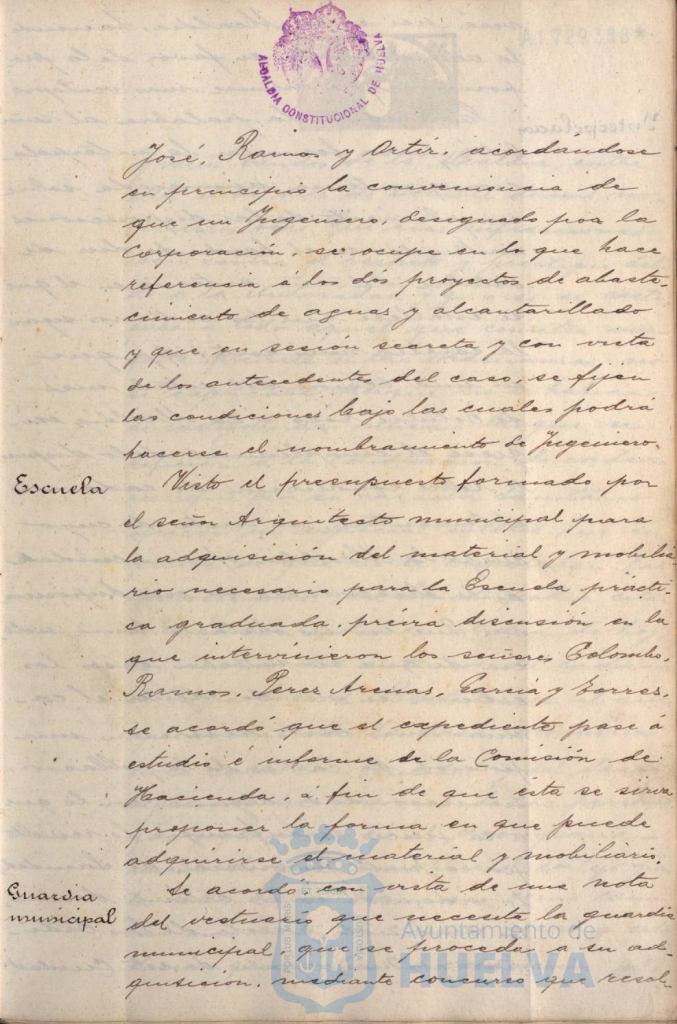 ALCALDIA CONSTITUCIONAL DE HUELVA
A1729388*
José, Ramos y Ortiz, acordándose
en principio la conveniencia de
que un Ingeniero, designado por la
Corporación, se ocupe en lo que hace
referencia á los dos proyectos de abaste-
cimiento de aguas y alcantarillado
y que en sesión secreta y con vista
de los antecedentes del caso, se fijen
las condiciones bajo las cuales podrá
hacerse el nombramiento de Ingeniero.
Escuela
Visto el presupuesto formado por
el señor Arquitecto municipal para
la adquisición del material y mobilia-
rio necesario para la Escuela prácti-
ca graduada, prévia discusión en la
que intervinieron los señores Colombo,
Ramos, Perez Arenas, García y Torres,
se acordó que el expediente pase á
estudio é informe de la Comisión de
Hacienda, á fin de que ésta se sirva
proponer la forma en que puede
adquirirse el material y mobiliario.
Guardia
municipal
Se acordó con vista de una nota
del vestuario que necesita la guardia
municipal, que se proceda a su ad-
quisición, mediante concurso que resol-
Ayuntamiento de
HUELVA